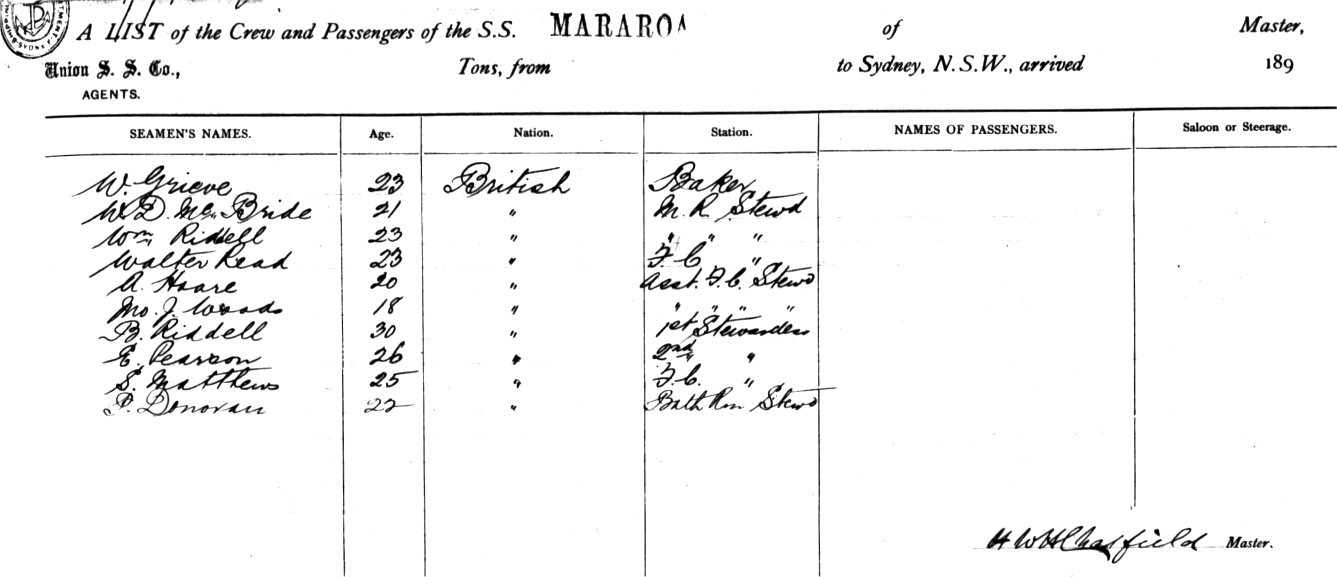 A LIST of the Crew and Passengers of the S.S. MARAROA of Master,
Union S. S. Co., Tons, from to Sydney, N.S.W., arrived 189
AGENTS.
SEAMEN'S NAMES. Age. Nation. Station. NAMES OF PASSENGERS. Saloon or Steerage.
W. Grieve 23 British Baker
W. D. McBride 21 " M. R. Stewd
Wm Riddell 23 " " " "
Walter Read 23 " F. C "
A. Hoare 20 " Asst. F. C. Stewd
J. Woods 18 " " " " "
B. Riddell 30 " 1st Stewardess
E. Pearson 26 " 2nd "
S. Matthews 25 " F. C. "
P. Donovan 22 " Bath Rm Stewd
Chatfield Master.